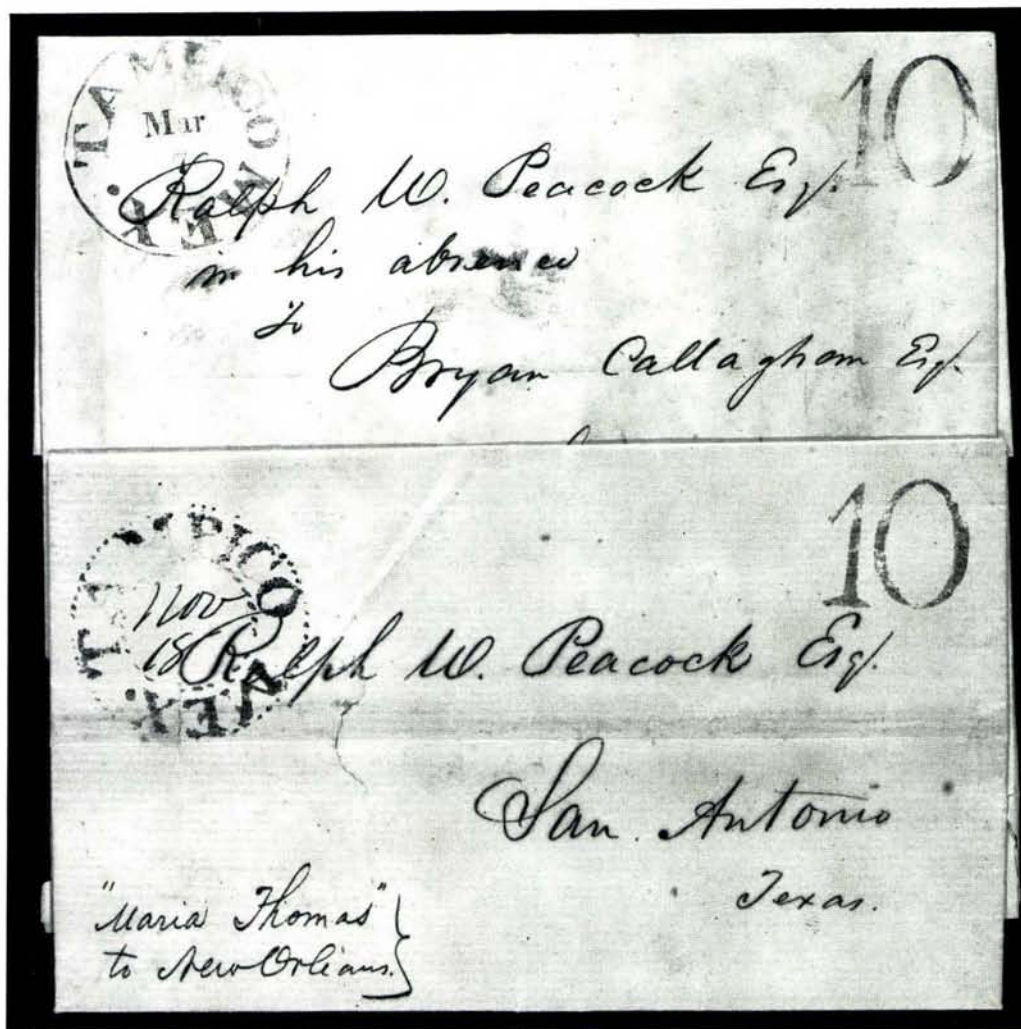 TAMPICO MEX.
Mar
10
Ralph W. Peacock Esqr.
in his absence
to
Bryan Callagham Esqr.
TAMPICO MEX.
Nov
18
10
Ralph W. Peacock Esqr.
San Antonio
Texas.
"Maria Thomas"
to New Orleans.